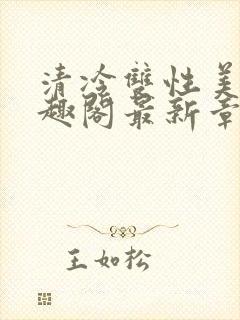 清冷雙性美
趣閣最新章
王如松